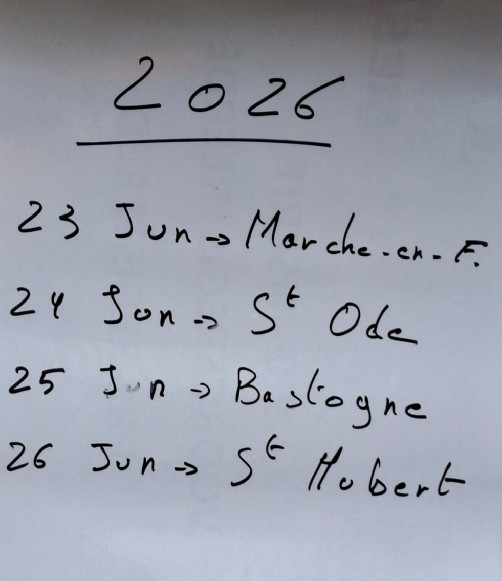 2026
23 Jun → Marche-en-F.
24 Jun → St Ode
25 Jun → Bastogne
26 Jun → St Hubert